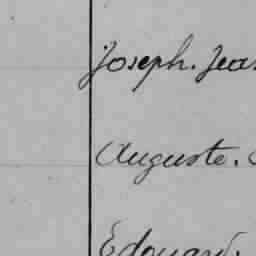 Joseph. Jea
Auguste.
Edouard.